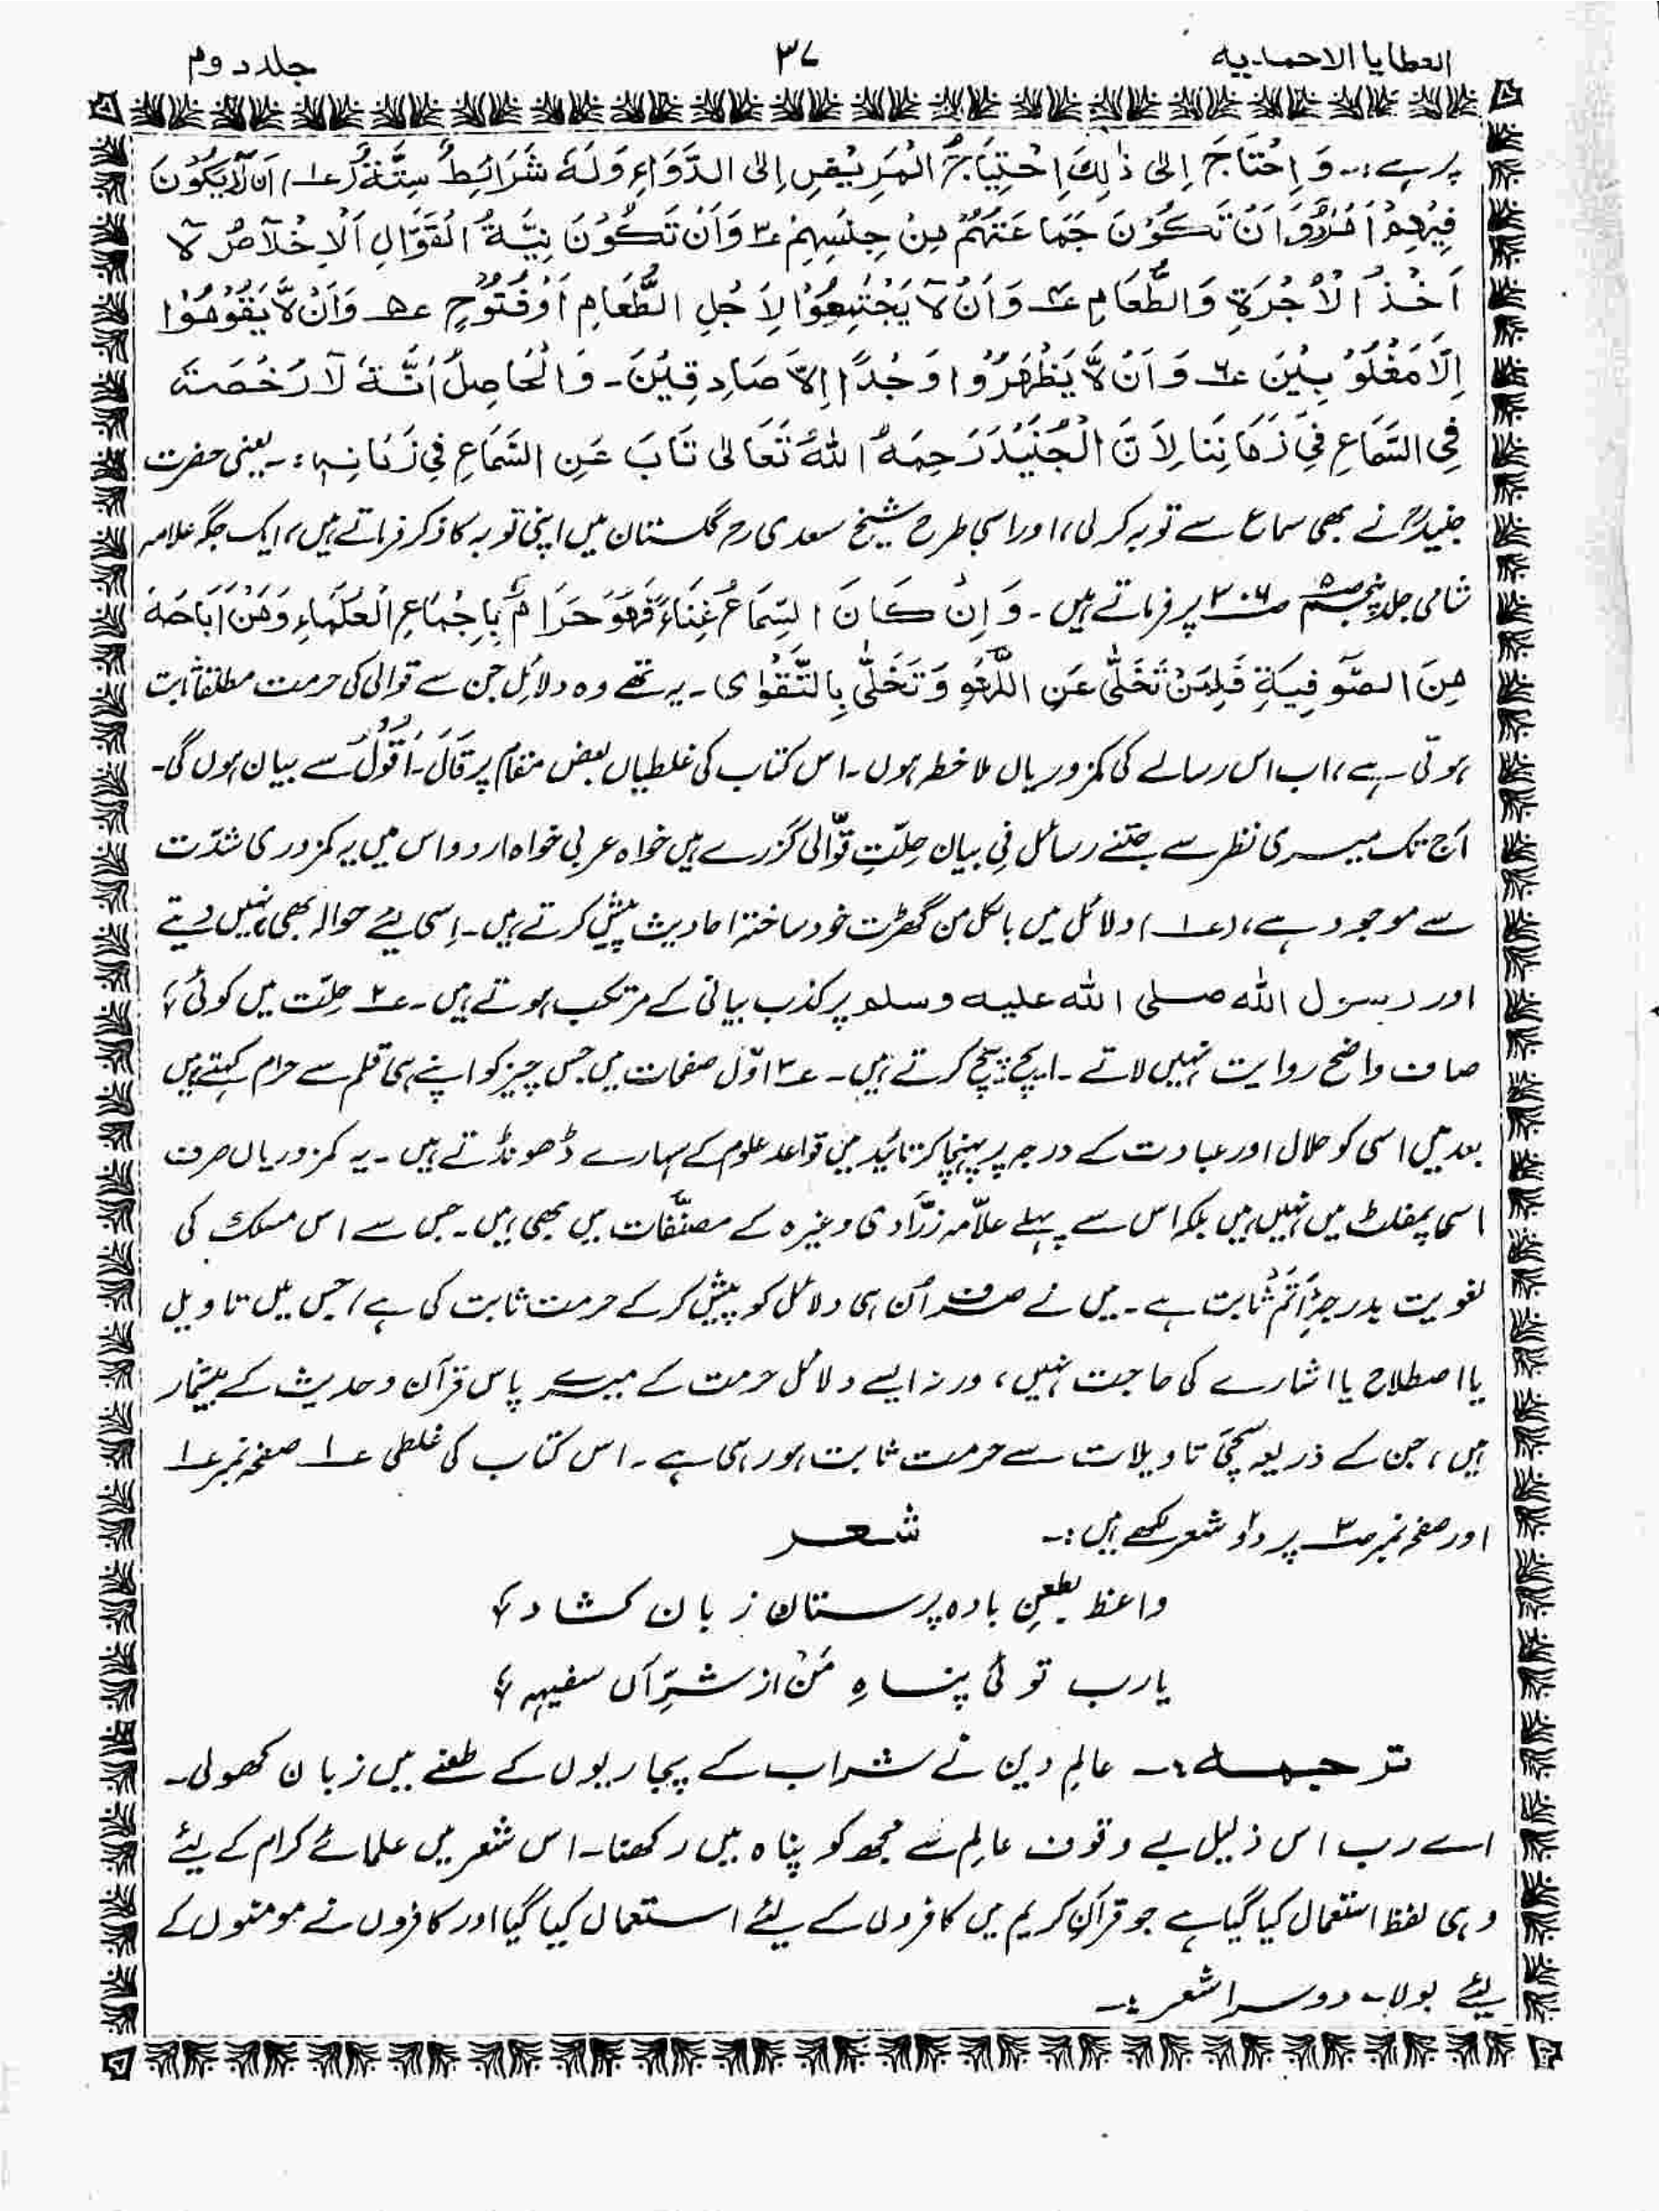 العطایا الاحمدیہ
۳۷
جلد دوم
پر ہے:۔ وَ اِحْتَاجَ اِلیٰ ذٰلِکَ اِحْتِیَاجُ الْمَرِیْضِ اِلیٰ الدَّوَاءِ وَلَہٗ شَرَائِطُ سِتَّۃٌ (ع۱) اَنْ لَّا یَکُوْنَ
فِیْہِمْ اَمْرَدُ وَ اَنْ تَکُوْنَ جَمَاعَتُہُمْ مِنْ جِنْسِہِمْ ع۳ وَاَنْ تَکُوْنَ نِیَّۃُ الْقَوَّالِ اَلْاِخْلَاصُ لَا
اَخْذُ الْاُجْرَۃِ وَالطَّعَامِ ع۴ وَاَنْ لَا یَجْتَمِعُوْا لِاَجْلِ الطَّعَامِ اَوْ فُتُوْحٍ ع۵ وَاَنْ لَّا یَقُوْمُوْا
اِلَّا مَغْلُوْبِیْنَ ع۶ وَ اَنْ لَّا یَظْہَرُوْا وَجْدًا اِلَّا صَادِقِیْنَ۔ وَ الْحَاصِلُ اَنَّہٗ لَا رُخْصَۃَ
فِی السَّمَاعِ فِیْ زَمَانِنَا لِاَنَّ الْجُنَیْدَ رَحِمَہُ اللّٰہُ تَعَالیٰ تَابَ عَنِ السَّمَاعِ فِیْ زَمَانِہٖ:۔ یعنی حضرت
جنیدؒ نے بھی سماع سے توبہ کر لی، اور اسی طرح شیخ سعدی رح گلستان میں اپنی توبہ کا ذکر فرماتے ہیں، ایک جگہ علامہ
شامی جلد پنجم ص۳۰۶ پر فرماتے ہیں۔ وَ اِنْ کَانَ السِّمَاعُ غِنَاءً فَہُوَ حَرَامٌ بِاِجْمَاعِ الْعُلَمَاءِ وَمَنْ اَبَاحَہٗ
مِنَ الصُّوفِیَۃِ فَلِمَنْ تَخَلّٰی عَنِ اللَّہْوِ وَ تَحَلّٰی بِالتَّقْوٰی)۔ یہ تھے وہ دلائل جن سے قوالی کی حرمت مطلقاً ثابت
ہوتی ہے، اب اس رسالے کی کمزوریاں ملاخطہ ہوں۔ اس کتاب کی غلطیاں بعض مقام پر قَالَ۔ اَقُوْلُ سے بیان ہوں گی۔
آج تک میری نظر سے جتنے رسائل فی بیان حِلّتِ قوّالی گزرے ہیں خواہ عربی خواہ اردو اس میں یہ کمزوری شدّت
سے موجود ہے، (ع۱) دلائل میں بالکل من گھڑت خود ساختہ احادیث پیش کرتے ہیں۔ اِسی لئے حوالہ بھی نہیں دیتے
اور رسول اللہ صلی اللہ علیہ وسلم پر کذب بیانی کے مرتکب ہوتے ہیں۔ ع۲ حِلّت میں کوئی
صاف واضح روایت نہیں لاتے۔ ایچ پیچ کرتے ہیں۔ ع۳ اوّل صفحات میں جس چیز کو اپنے ہی قلم سے حرام کہتے ہیں
بعد میں اسی کو حلال اور عبادت کے درجہ پر پہنچا کر تائید میں قواعد علوم کے سہارے ڈھونڈتے ہیں۔ یہ کمزوریاں صرف
اسی پمفلٹ میں نہیں ہیں بلکہ اس سے پہلے علاّمہ زرّادی وغیرہ کے مصنّفات میں بھی ہیں۔ جس سے اس مسلک کی
لغویت بدرجۂ اَتَمْ ثابت ہے۔ میں نے صرف اُن ہی دلائل کو پیش کر کے حرمت ثابت کی ہے، جس میں تاویل
یا اصطلاح یا اشارے کی حاجت نہیں، ورنہ ایسے دلائل حرمت کے میرے پاس قرآن وحدیث کے بیشمار
ہیں، جن کے ذریعہ سچّی تاویلات سے حرمت ثابت ہو رہی ہے۔ اس کتاب کی غلطی ع۱ صفحہ نمبر ع۱
اور صفحہ نمبر ص۳ پر دو شعر لکھے ہیں:۔ شعر
واعظ بطعنِ بادہ پرستان زبان کشاد ؎
یارب توئی پناہِ مَنْ از شرِّ آں سفیہہ ؎
ترجمہ:۔ عالمِ دین نے شراب کے پجاریوں کے طعنے میں زبان کھولی۔
اے رب اس ذلیل بے وقوف عالِم سے مجھ کو پناہ میں رکھنا۔ اس شعر میں علمائے کرام کے لیئے
وہی لفظ استعمال کیا گیا ہے جو قرآنِ کریم میں کافروں کے لیئے استعمال کیا گیا اور کافروں نے مومنوں کے
لیئے بولا۔ دوسرا شعر:۔